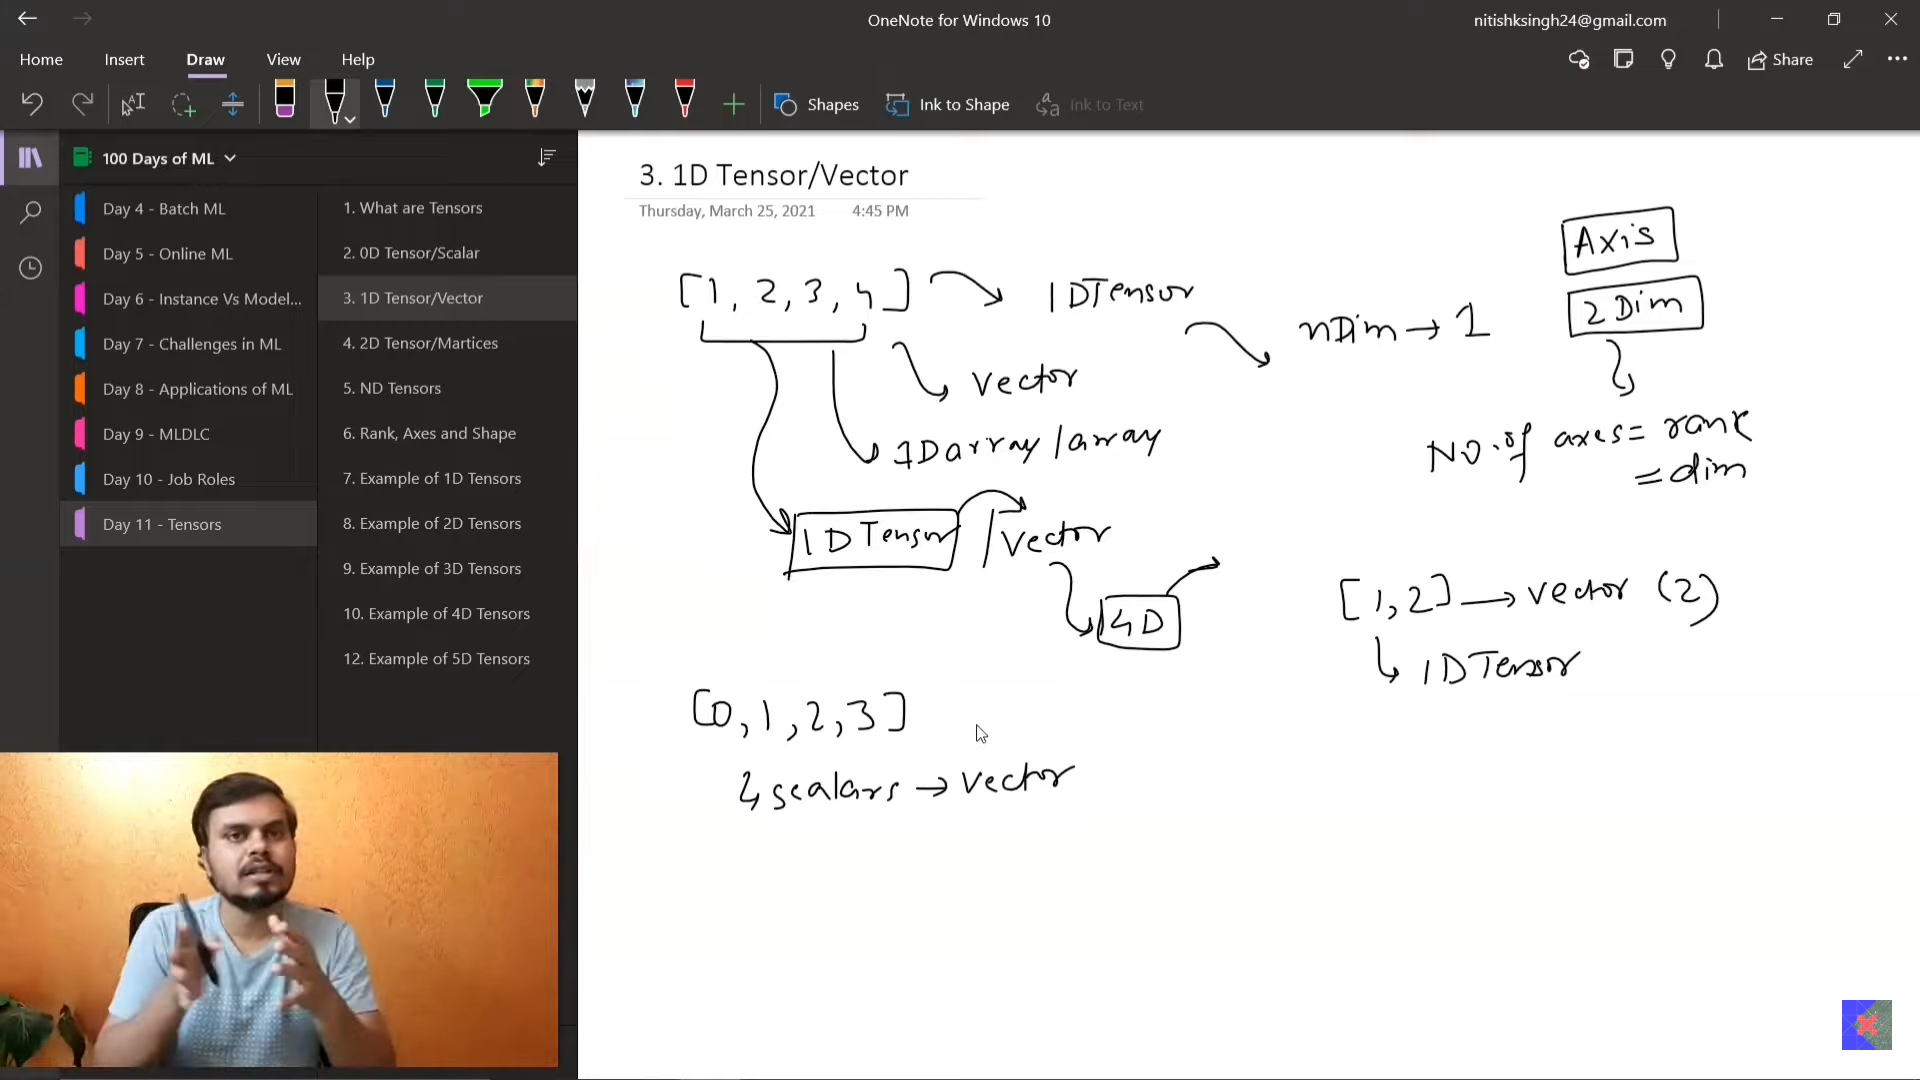 OneNote for Windows 10
nitishksingh24@gmail.com
Home
Insert
Draw
View
Help
Share
Shapes
Ink to Shape
Ink to Text
100 Days of ML
Day 4 - Batch ML
Day 5 - Online ML
Day 6 - Instance Vs Model...
Day 7 - Challenges in ML
Day 8 - Applications of ML
Day 9 - MLDLC
Day 10 - Job Roles
Day 11 - Tensors
1. What are Tensors
2. 0D Tensor/Scalar
3. 1D Tensor/Vector
4. 2D Tensor/Martices
5. ND Tensors
6. Rank, Axes and Shape
7. Example of 1D Tensors
8. Example of 2D Tensors
9. Example of 3D Tensors
10. Example of 4D Tensors
12. Example of 5D Tensors
3. 1D Tensor/Vector
Thursday, March 25, 2021 4:45 PM
[1, 2, 3, 4]
1DTensor
nDim → 1
Axis
2 Dim
vector
1D array / array
No. of axes = rank
= dim
1D Tensor / vector
4D
[1,2] → vector (2)
1D Tensor
[0, 1, 2, 3]
4 scalars → vector